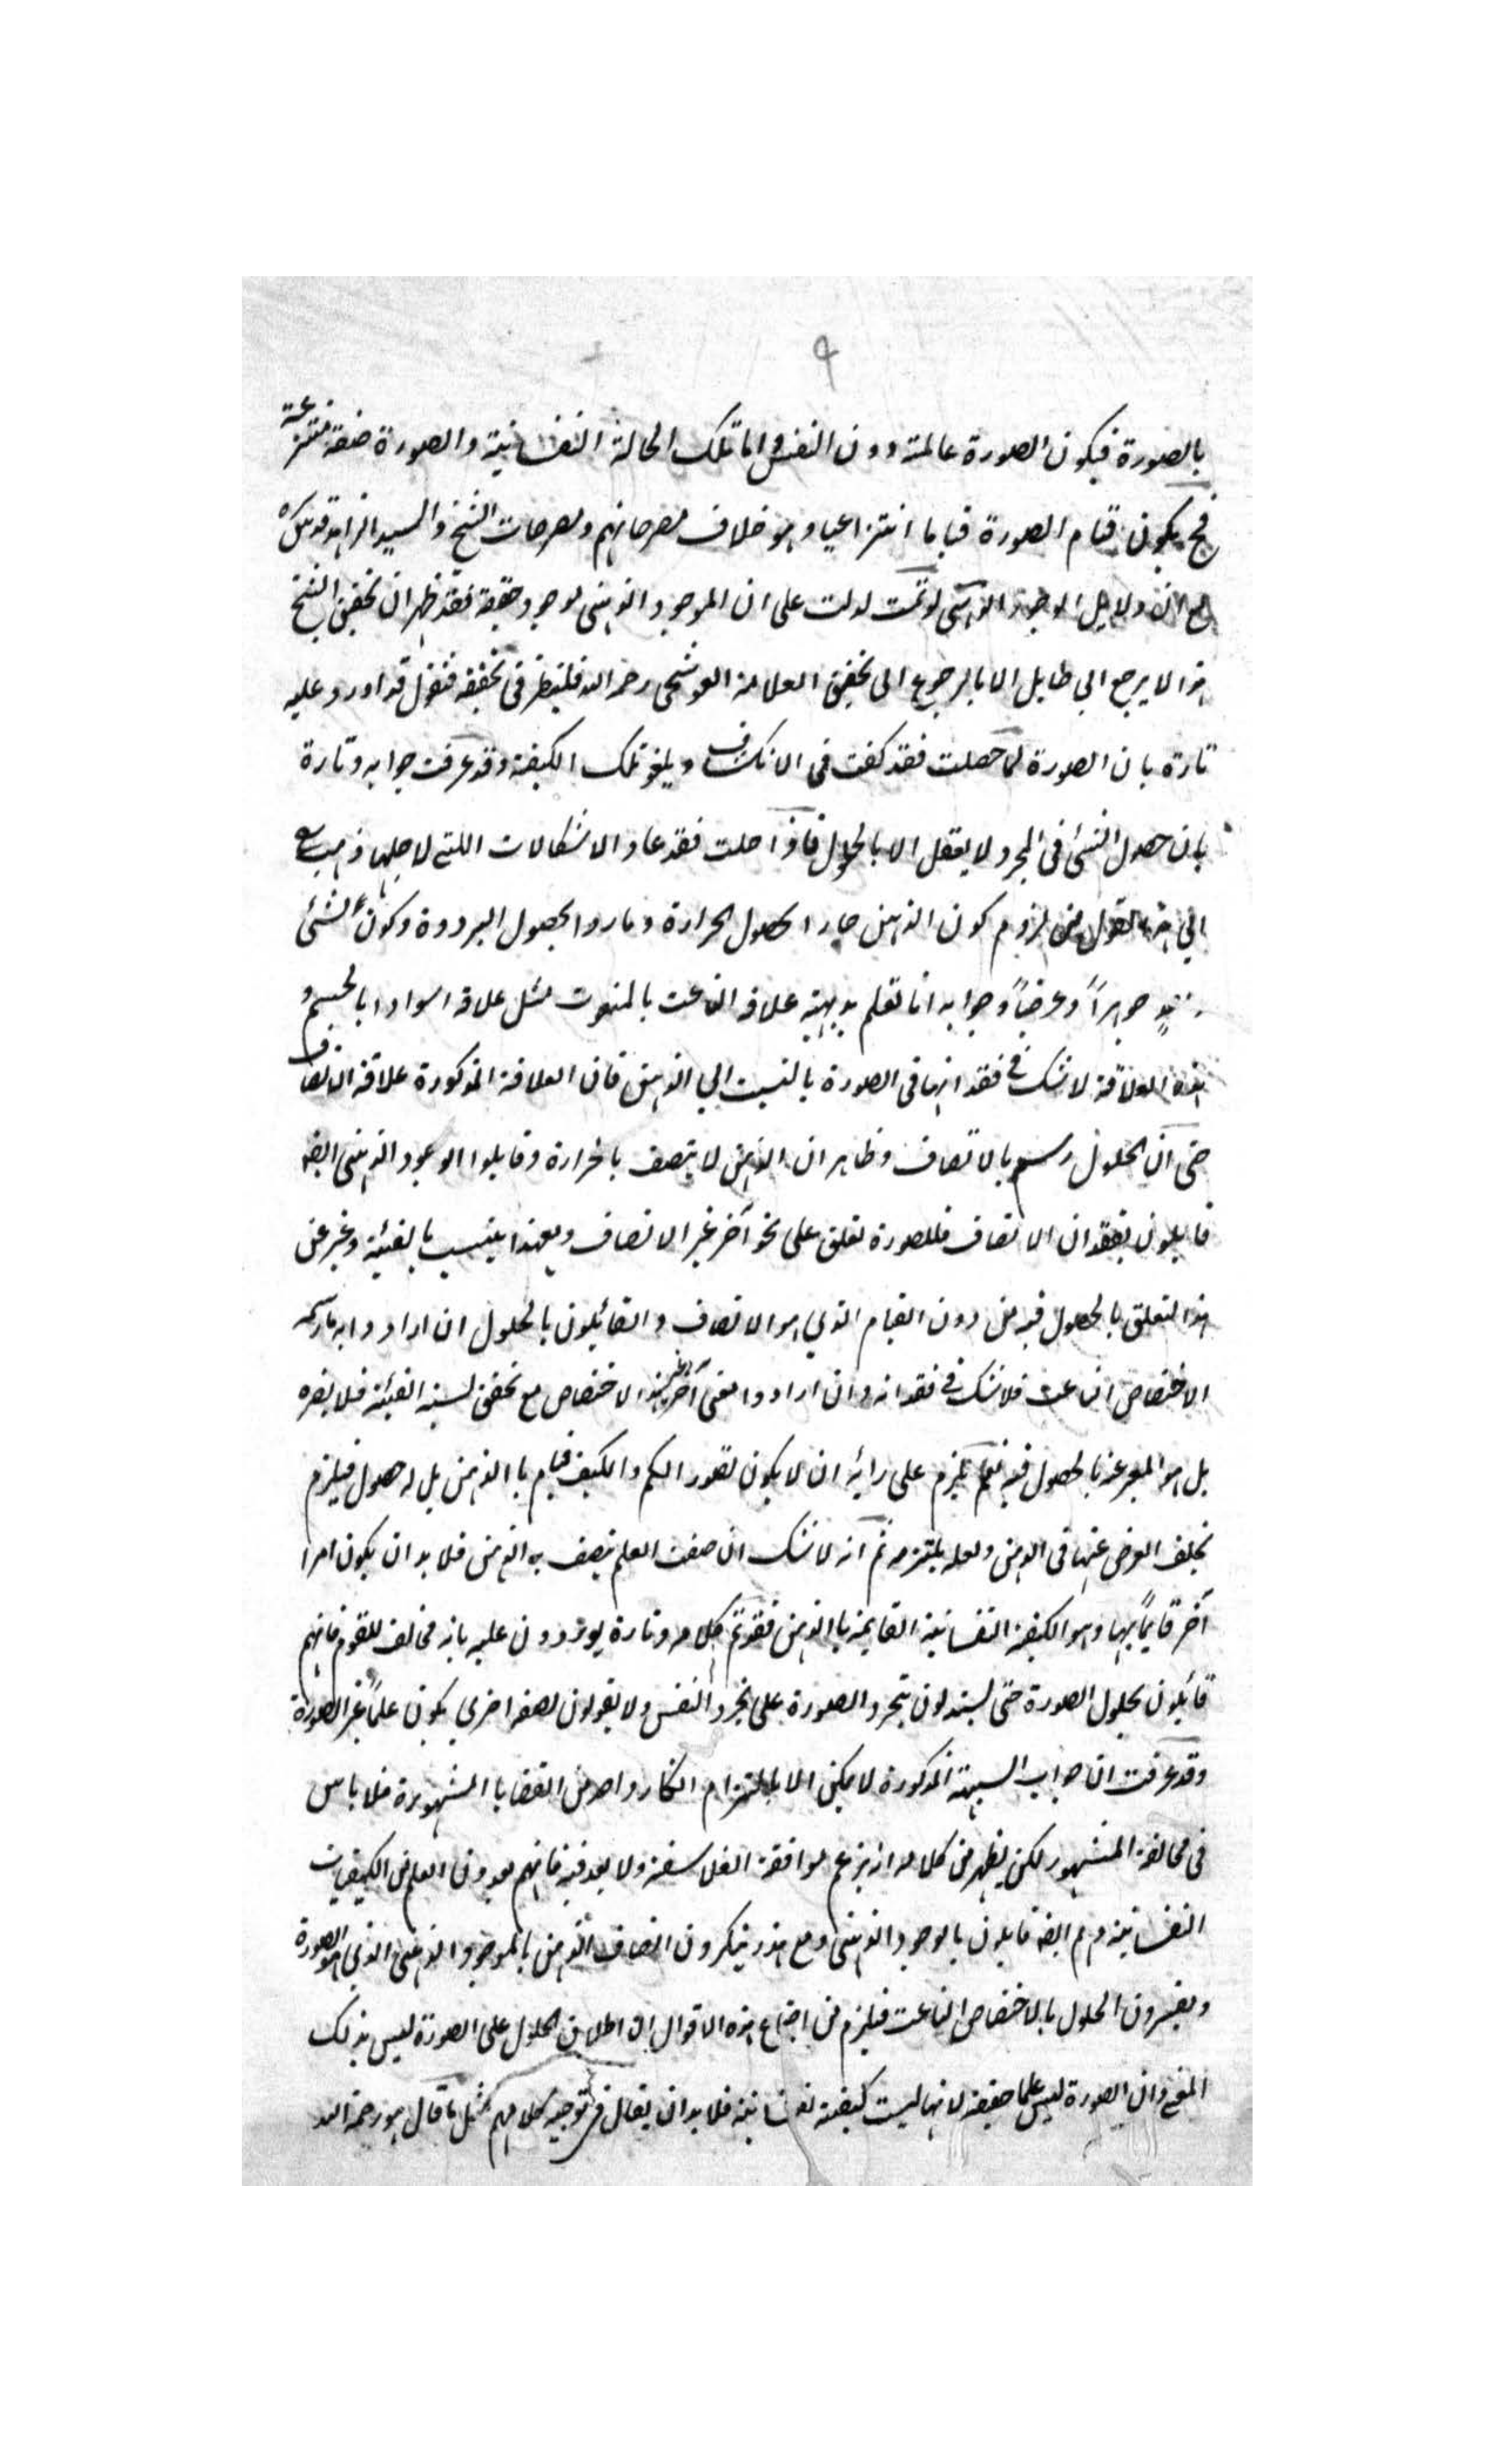 ٩
بالصورة فيكون الصورة عالمة دون النفس واما تلك الحالة النفسانية والصورة صفة منتزعة
فح يكون قيام الصورة قياما انتزاعيا وهو خلاف مصرحاتهم ومصرحات الشيخ والسيد الزاهد قدس سره
دلايل الوجود الذهني لو تمت لدلت على ان الموجود الذهني موجود حقيقة فقد ظهر ان تحقيق الشيخ
هذا لا يرجع الي طايل الا بالرجوع الى تحقيق العلامة القوشجى رحمه الله فلينظر في تحقيقه فنقول قد اورد عليه
تارة بان الصورة لما حصلت فقد كفت فى الانكشاف ويلغو تلك الكيفية وقد عرفت جوابه وتارة
بان حصول الشئ فى المجرد لا يعقل الا بالحلول فاذا حلت فقد عاد الاشكالات اللتي لاجلها ذهب
الي هذا القول من لزوم كون الذهن حارا لحصول الحرارة وباردا لحصول البرودة وكون الشئ
جوهراً وعرضاً وجوابه انا نعلم بديهية علاقة الناعت بالمنعوت مثل علاقة السواد بالجسم و
هذه العلاقة لا شك في فقدانها فى الصورة بالنسبت الي الذهن فان العلاقة المذكورة علاقة الاتصاف
حتى ان الحلول رسم بالاتصاف وظاهر ان الذهن لا يتصف بالحرارة وقايلوا الوجود الذهنى ايضه
قايلون بفقدان الاتصاف فللصورة تعلق على نحو آخر غير الاتصاف وبهذا ينتسب بالفيئية وعبر عن
هذا التعلق بالحصول فيه من دون القيام الذي هو الاتصاف والقائلون بالحلول ان ارادوا به ما رسمه
الاختصاص الناعت فلا شك في فقدانه وان ارادوا معنى آخر غير هذا الاختصاص مع تحقق نسبة الفيئية فلا يضره
بل هو المعبر عنه بالحصول فيه نعم يلزم على رأيه ان لا يكون لصور الكم والكيف قيام باالذهن بل له حصول فيلزم
تخلف العرض عنها فى الذهن ولعله يلتزمه ثم انه لا شك ان صفت العلم يتصف به الذهن فلا بد ان يكون امرا
آخر قايماً بها وهو الكيفية النفسانية القايمة باالذهن فقد تم كلامه وتارة يوردون عليه بانه مخالف للقوم فانهم
قائلون بحلول الصورة حتى يستدلون بتجرد الصورة على تجرد النفس ولا يقولون بصفة اخري يكون علماً غير الصورة
وقد عرفت ان جواب الشبهة المذكورة لا يمكن الا بالتزام انكار واحد من القضايا المشهورة فلا باس
فى مخالفة المشهور لكن يظهر من كلامه انه يزعم موافقة الفلاسفة ولا بعد فيه فانهم يعدون العلم من الكيفيات
النفسانية وهم ايضه قايلون بالوجود الذهنى ومع هذا ينكرون اتصاف الذهن بالموجود الذهنى الذي هو الصورة
ويفسرون الحلول بالاختصاص الناعت فيلزم من اجتماع هذه الاقوال ان اطلاق الحلول على الصورة ليس بذلك
المعنى وان الصورة ليس علما حقيقة لانها ليست كيفية نفسانية فلا بد ان يقال في توجيه كلامهم بمثل ما قال هو رحمه الله